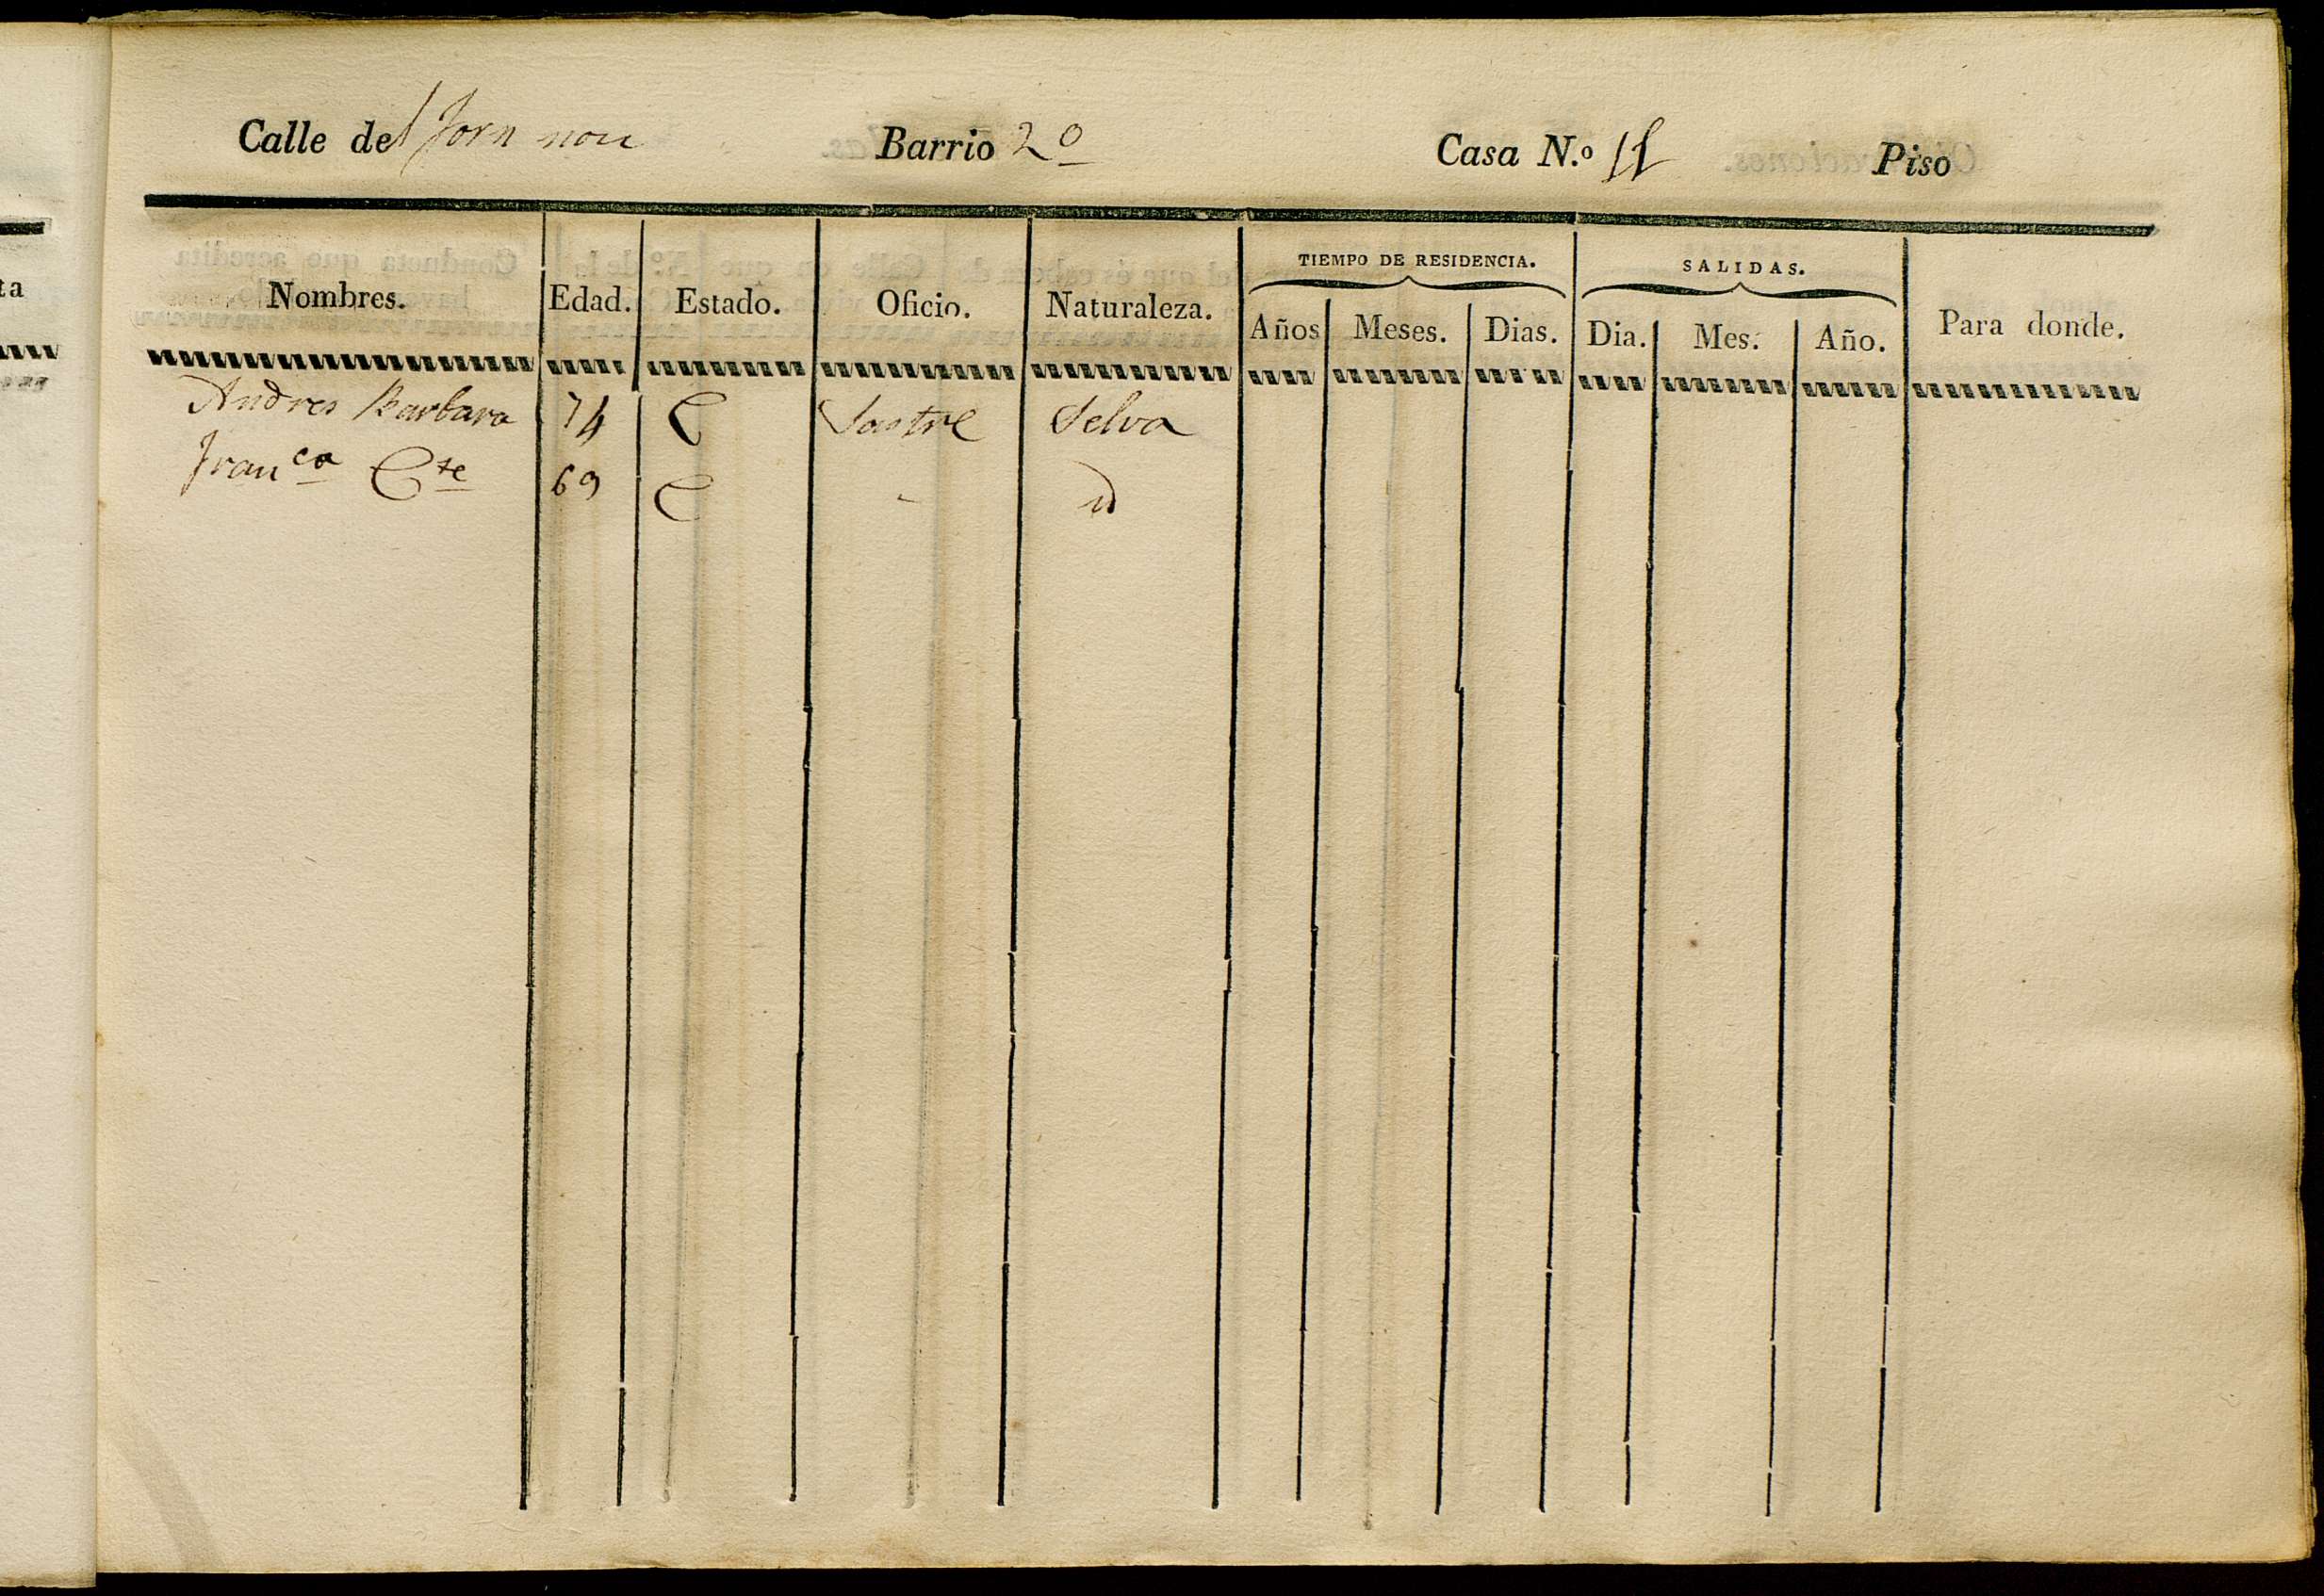 Calle del forn nou Barrio 2º Casa N.º 11 Piso
Nombres. Edad. Estado. Oficio. Naturaleza. TIEMPO DE RESIDENCIA. SALIDAS. Para donde.
Años Meses. Dias. Dia. Mes. Año.
Andres Barbara 74 C Sastre Selva
Fran.ca C.te 69 C - id
ta